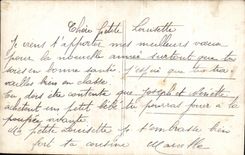 Chère petite Lousette
Je viens t'apporter mes meilleurs vœux
pour la nouvelle année surtout que tu
sois en bonne santé j'espère que tu tra-
vailles bien en classe
tu dois être contente que Joseph et
achetent un petit bébé tu pourras jouer à la
poupée vivante
Ma petite Lousette je t'embrasse bien
fort ta cousine Marcelle